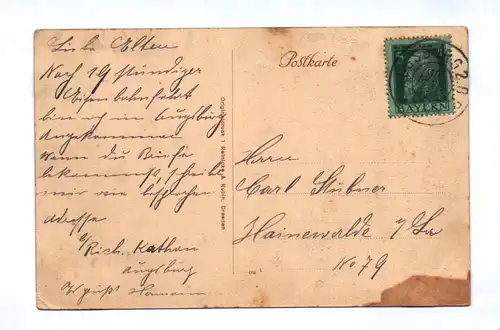 Liebe Eltern
Nach 19 stündiger
Eisenbahnfahrt
bin ich in Augsburg
angekommen
wenn du Briefe
bekommst, schreibe
mir wie
Adresse
Rich. Kathan
Augsburg
Es grüßt Hermann
Originaldruck
Dresden
Postkarte
5
BAYERN
Herrn
Carl Stübner
Hainewalde i/Sa
No 79